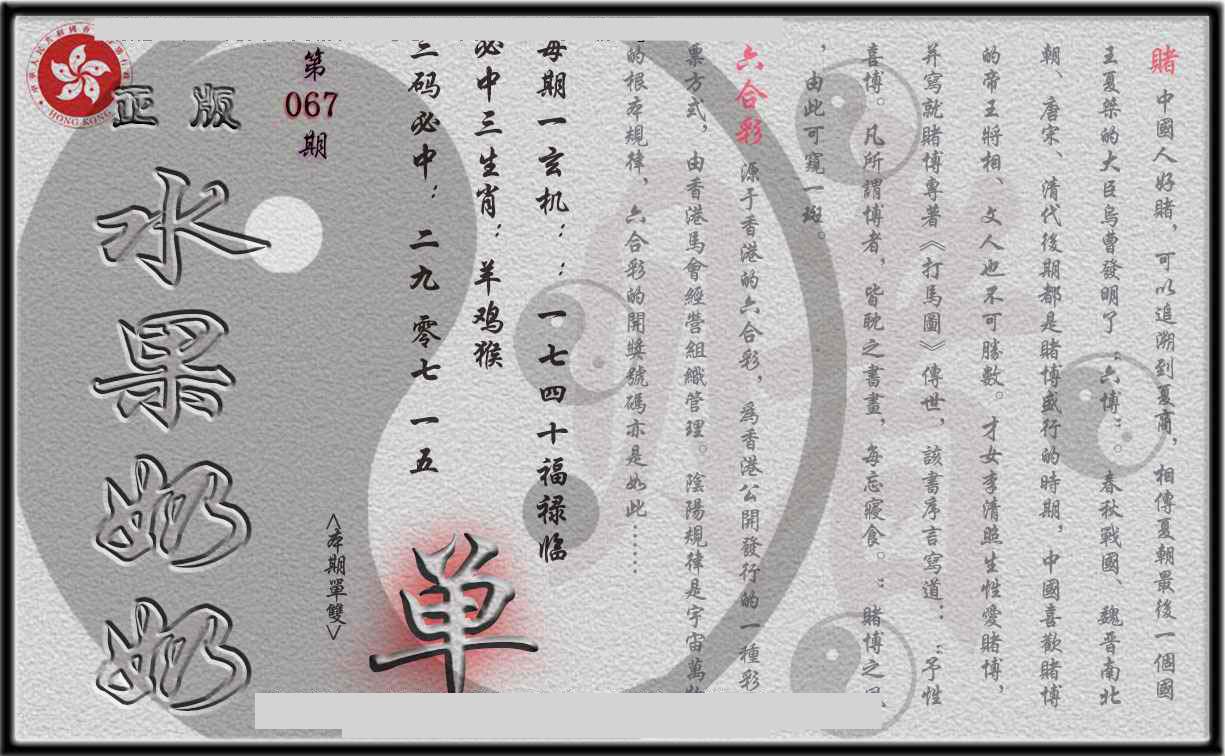 賭 中國人好賭，可以追溯到夏商，相傳夏朝最後一個國
王夏桀的大臣烏曹發明了“六博”。春秋戰國、魏晉南北
朝、唐宋、清代後期都是賭博盛行的時期，中國喜歡賭博
的帝王將相、文人也不可勝數。才女李清照生性愛賭博，
并寫就賭博專著《打馬圖》傳世，該書序言寫道：“予性
喜博。凡所謂博者，皆耽之書晝，每忘寢食。”賭博之
，由此可窺一斑。
六合彩 源于香港的六合彩，為香港公開發行的一種彩
票方式，由香港馬會經營組織管理。陰陽規律是宇宙萬
的根本規律，六合彩的開獎號碼亦是如此……
每期一玄机：：一七四十福禄临
必中三生肖：羊鸡猴
三码必中：二九 零七 一五
第
067
期
正版
水果奶奶
<本期單雙>
单
HONG KONG